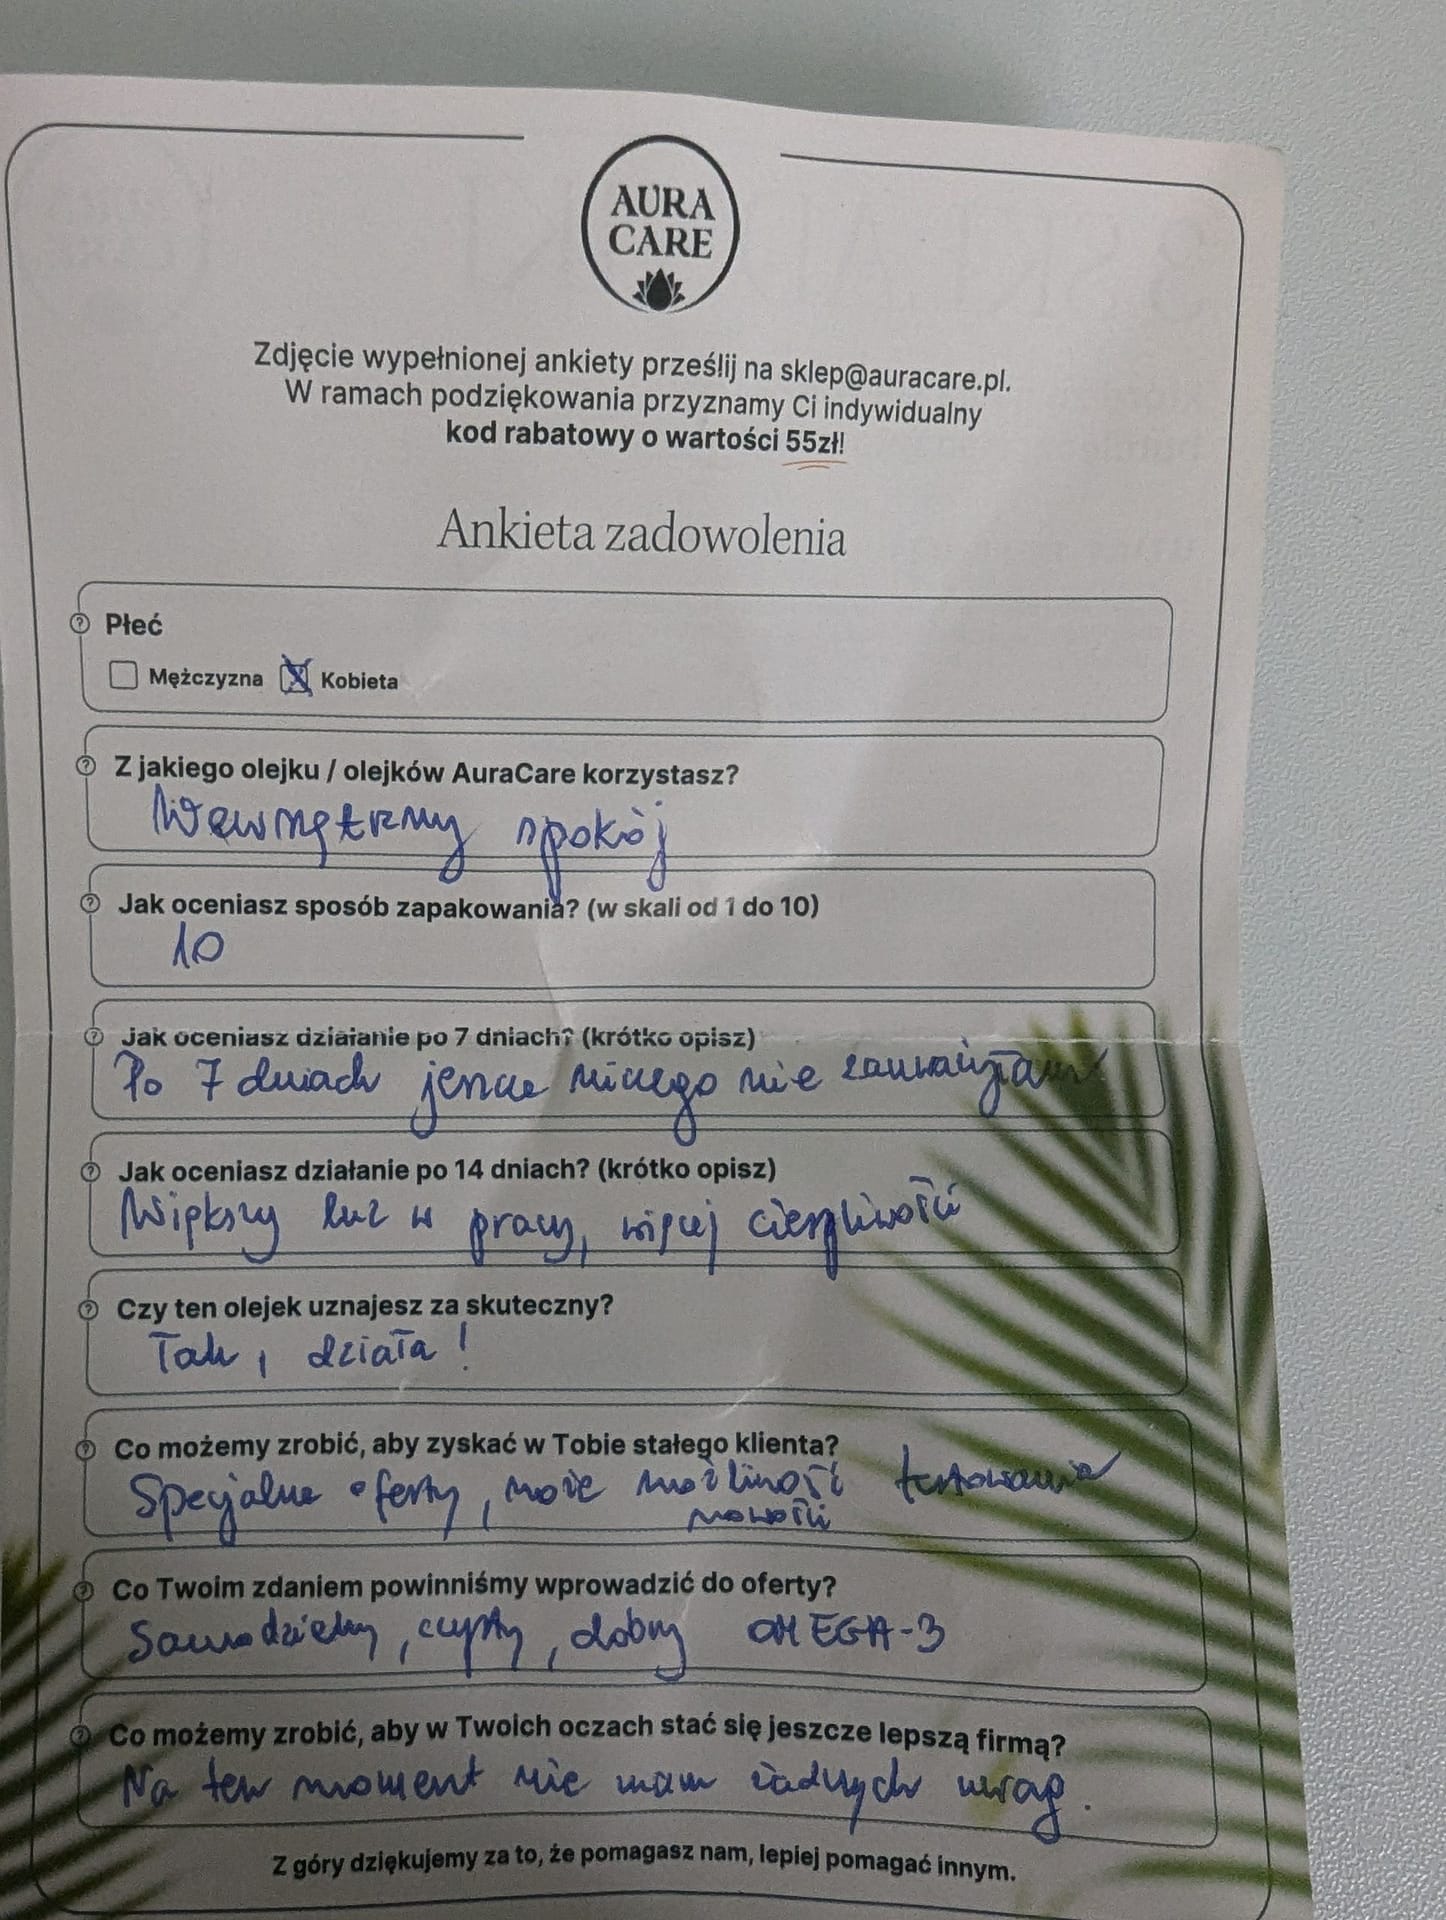 AURA
CARE
Zdjęcie wypełnionej ankiety prześlij na sklep@auracare.pl.
W ramach podziękowania przyznamy Ci indywidualny
kod rabatowy o wartości 55zł!
Ankieta zadowolenia
Płeć
Mężczyzna Kobieta
Z jakiego olejku / olejków AuraCare korzystasz?
Wewnętrzny spokój
Jak oceniasz sposób zapakowania? (w skali od 1 do 10)
10
Jak oceniasz działanie po 7 dniach? (krótko opisz)
Po 7 dniach jeszcze niczego nie zauważyłam
Jak oceniasz działanie po 14 dniach? (krótko opisz)
Większy luz w pracy, więcej cierpliwości
Czy ten olejek uznajesz za skuteczny?
Tak, działa!
Co możemy zrobić, aby zyskać w Tobie stałego klienta?
Specjalne oferty, może możliwość testowania
nowości
Co Twoim zdaniem powinniśmy wprowadzić do oferty?
Samodzielny, czysty, dobry OMEGA-3
Co możemy zrobić, aby w Twoich oczach stać się jeszcze lepszą firmą?
Na ten moment nie mam żadnych uwag.
Z góry dziękujemy za to, że pomagasz nam, lepiej pomagać innym.